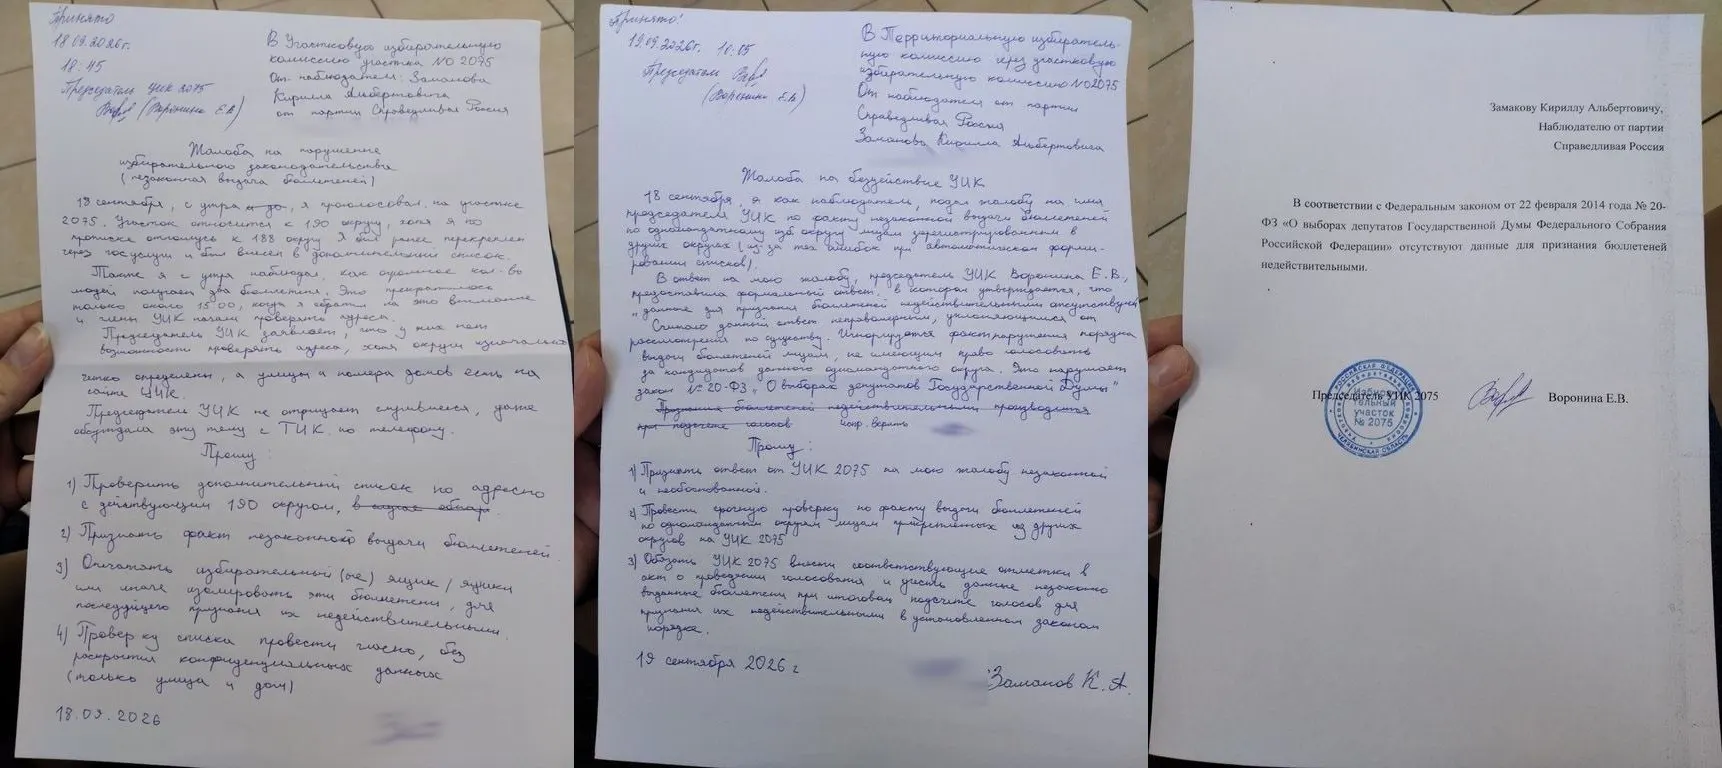 Принято
18.09.2026г.
18:45
Председатель УИК 2075
(Воронина Е.В)
В Участковую избирательную
комиссию участка №2075
От наблюдателя: Замакова
Кирилла Альбертовича
от партии Справедливая Россия
Жалоба на нарушение
избирательного законодательства
(незаконная выдача бюллетеней)
18 сентября, с утра я проголосовал на участке
2075. Участок относится к 190 округу, хотя я по
прописке отношусь к 188 округу. Я был ранее перекреплен
через госуслуги и был внесен в дополнительный список.
Также я с утра наблюдал, как огромное кол-во
людей получает два бюллетеня. Это прекратилось
только около 15:00, когда я обратил на это внимание
и члены УИК начали проверять адреса.
Председатель УИК заявляет, что у них нет
возможности проверять адреса, хотя округи изначально
четко определены, а улицы и номера домов есть на
сайте ЦИК.
Председатель УИК не отрицает случившееся, даже
обсуждала эту тему с ТИК по телефону.
Прошу:
1) Проверить дополнительный список по адресно
с действующим 190 округом,
2) Признать факт незаконной выдачи бюллетеней
3) Опечатать избирательный(ые) ящик/ящики
или иначе изолировать эти бюллетени, для
последующего признания их недействительными.
4) Проверку списка провести гласно, без
раскрытия конфиденциальных данных
(только улица и дом)
18.09.2026
Принято!
19.09.2026г. 10:05
Председатель
(Воронина Е.В.)
В Территориальную избиратель-
ную комиссию через участковую
избирательную комиссию №2075
От наблюдателя от партии
Справедливая Россия
Замакова Кирилла Альбертовича
Жалоба на бездействие УИК
18 сентября, я как наблюдатель, подал жалобу на имя
председателя УИК по факту незаконной выдачи бюллетеней
по одномандатному изб округу лицам зарегистрированным в
других округах (из-за тех. ошибок при автоматическом форми-
ровании списков).
В ответ на мою жалобу, председатель УИК Воронина Е.В.,
предоставила формальный ответ, в котором утверждается, что
"данные для признания бюллетеней недействительными отсутствуют"
Считаю данный ответ неправомерным, уклоняющимся от
рассмотрения по существу. Игнорируется факт нарушения порядка
выдачи бюллетеней лицам, не имеющим право голосовать
за кандидатов данного одномандатного округа. Это нарушает
закон №20-ФЗ "О выборах депутатов Государственной Думы"
Признание бюллетеней недействительными производится
при подсчете голосов испр. верить
Прошу:
1) Признать ответ от УИК 2075 на мою жалобу незаконной
и необоснованной.
2) Провести срочную проверку по факту выдачи бюллетеней
по одномандатным округам лицам прикрепленных из других
округов на УИК 2075
3) Обязать УИК 2075 внести соответствующие отметки в
акт о проведении голосования и учесть данные незаконно
выданные бюллетени при итоговом подсчете голосов для
признания их недействительными в установленном законом
порядке.
19 сентября 2026 г
Замаков К.А.
Замакову Кириллу Альбертовичу,
Наблюдателю от партии
Справедливая Россия
В соответствии с Федеральным законом от 22 февраля 2014 года № 20-
ФЗ «О выборах депутатов Государственной Думы Федерального Собрания
Российской Федерации» отсутствуют данные для признания бюллетеней
недействительными.
Председатель УИК 2075
Воронина Е.В.
РОССИЙСКАЯ ФЕДЕРАЦИЯ
Избира-
тельный
участок
№ 2075
ЧЕЛЯБИНСКАЯ ОБЛАСТЬ